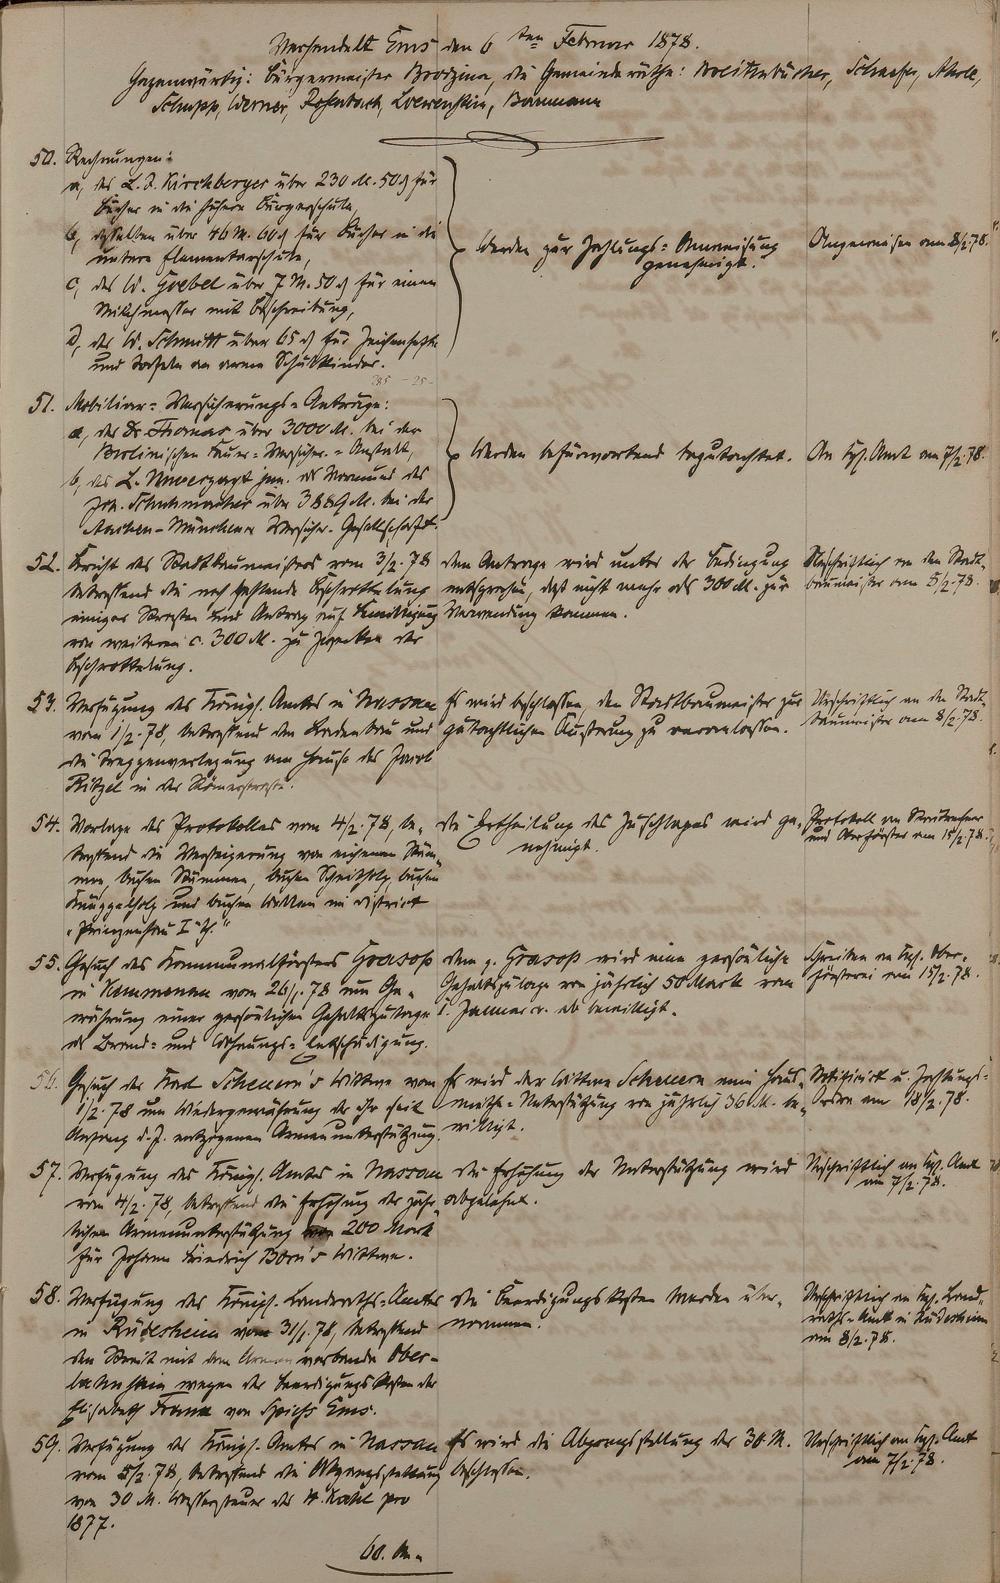 Verhandelt Ems den 6ten Februar 1878.
Gegenwärtig: Bürgermeister Brodzina, die Gemeinderäthe: Breitenbücher, Schaefer,
Schupp, Werner, Rosenbach, Loewenstein, Baumann
50. Rechnungen:
a, des L. J. Kirchberger über 230 M. 50 ₰ für
Bücher in die höhere Bürgerschule,
b, desselben über 46 M. 60 ₰ für Bücher in die
untere Elementarschule,
c, des W. Goebel über 7 M. 50 ₰ für einen
Milchmesser mit Beschreibung,
d, des W. Schmitt über 65 ₰ für Zeichenhefte
und Tafeln an arme Schulkinder.
Werden zur Zahlungs-Anweisung
genehmigt.
Angewiesen am 8/2.78.
51. Mobiliar-Versicherungs-Anträge:
a, des Dr. Thomas über 3000 M. bei der
Berlinischen Feuer-Versicher.-Anstalt,
b, des L. Unverzagt jun. als Vormund des
Joh. Schuhmacher über 3889 M. bei der
Aachen-Münchener Versicher.-Gesellschaft.
Werden befürwortend begutachtet.
An Kgl. Amt am 7/2.78.
52. Bericht des Stadtbaumeisters vom 3/2.78
betreffend die noch fehlende Beschotterung
einiger Straßen und Antrag auf Bewilligung
von weiteren c. 300 M. zu Zwecken der
Beschotterung.
Dem Antrage wird unter der Bedingung
entsprochen, daß nicht mehr als 300 M. zur
Verwendung kommen.
Urschriftlich an den Stadt-
baumeister am 5/2.78.
53. Verfügung des Königl. Amtes in Nassau
vom 1/2.78, betreffend den Ladenbau und
die Treppenverlegung am Hause des Jacob
Ritzel in der Römerstraße.
Es wird beschlossen, den Stadtbaumeister zur
gutachtlichen Äußerung zu veranlassen.
Urschriftlich an den Stadt-
baumeister am 8/2.78.
54. Vorlage des Protokolles vom 4/2.78, be-
treffend die Versteigerung von eichenen Stäm-
men, buchen Stämmen, buchen Scheitholz, buchen
Knüppelholz und buchen Wellen im District
"Prinzenhau I"
Die Ertheilung des Zuschlages wird ge-
nehmigt.
Protokoll an Stadtrechner
und Oberförster am 15/2.78.
55. Gesuch des Kommunalförsters Grasoß
in Kemmenau vom 26/1.78 um Ge-
währung einer persönlichen Gehaltszulage
als Brand- und Wohnungs-Entschädigung.
Dem p. Grasoß wird eine persönliche
Gehaltszulage von jährlich 50 Mark vom
1. Januar c. ab bewilligt.
Schreiben an Kgl. Ober-
försterei am 15/2.78.
56. Gesuch der Karl Scheuern's Wittwe vom
1/2.78 um Wiedergewährung der ihr seit
Anfang d. J. entzogenen Armenunterstützung.
Es wird der Wittwe Scheuern eine Haus-
miethe-Unterstützung von jährlich 36 M. be-
willigt.
Notificirt u. Zahlungs-
ordre am 18/2.78.
57. Verfügung des Königl. Amtes in Nassau
vom 4/2.78, betreffend die Erhöhung der jähr-
lichen Armenunterstützung von 200 Mark
für Johann Friedrich Born's Wittwe.
Die Erhöhung der Unterstützung wird
abgelehnt.
Urschriftlich an Kgl. Amt
am 7/2.78.
58. Verfügung des Königl. Landraths-Amtes
in Rüdesheim vom 31/1.78, betreffend
den Streit mit dem Armenverbande Ober-
lahnstein wegen der Beerdigungskosten der
Elisabeth Frank von Spieß Ems.
Die Beerdigungskosten werden über-
nommen.
Urschriftlich an Kgl. Land-
raths-Amt in Rüdesheim
am 8/2.78.
59. Verfügung des Königl. Amtes in Nassau
vom 5/2.78, betreffend die Abgangsstellung
von 30 M. Wassersteuer des H. Kahl pro
1877.
Es wird die Abgangsstellung der 30 M.
beschlossen.
Urschriftlich an Kgl. Amt
am 7/2.78.